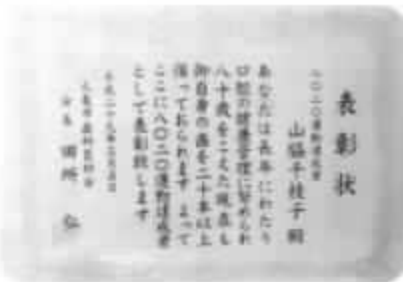 表彰状
八〇二〇運動達成者
山脇千枝子殿
あなたは長年にわたり
口腔の健康管理に努められ
八十歳をこえた現在も
御自身の歯を二十本以上
保っておられます よって
ここに八〇二〇運動達成者
として表彰致します
会長